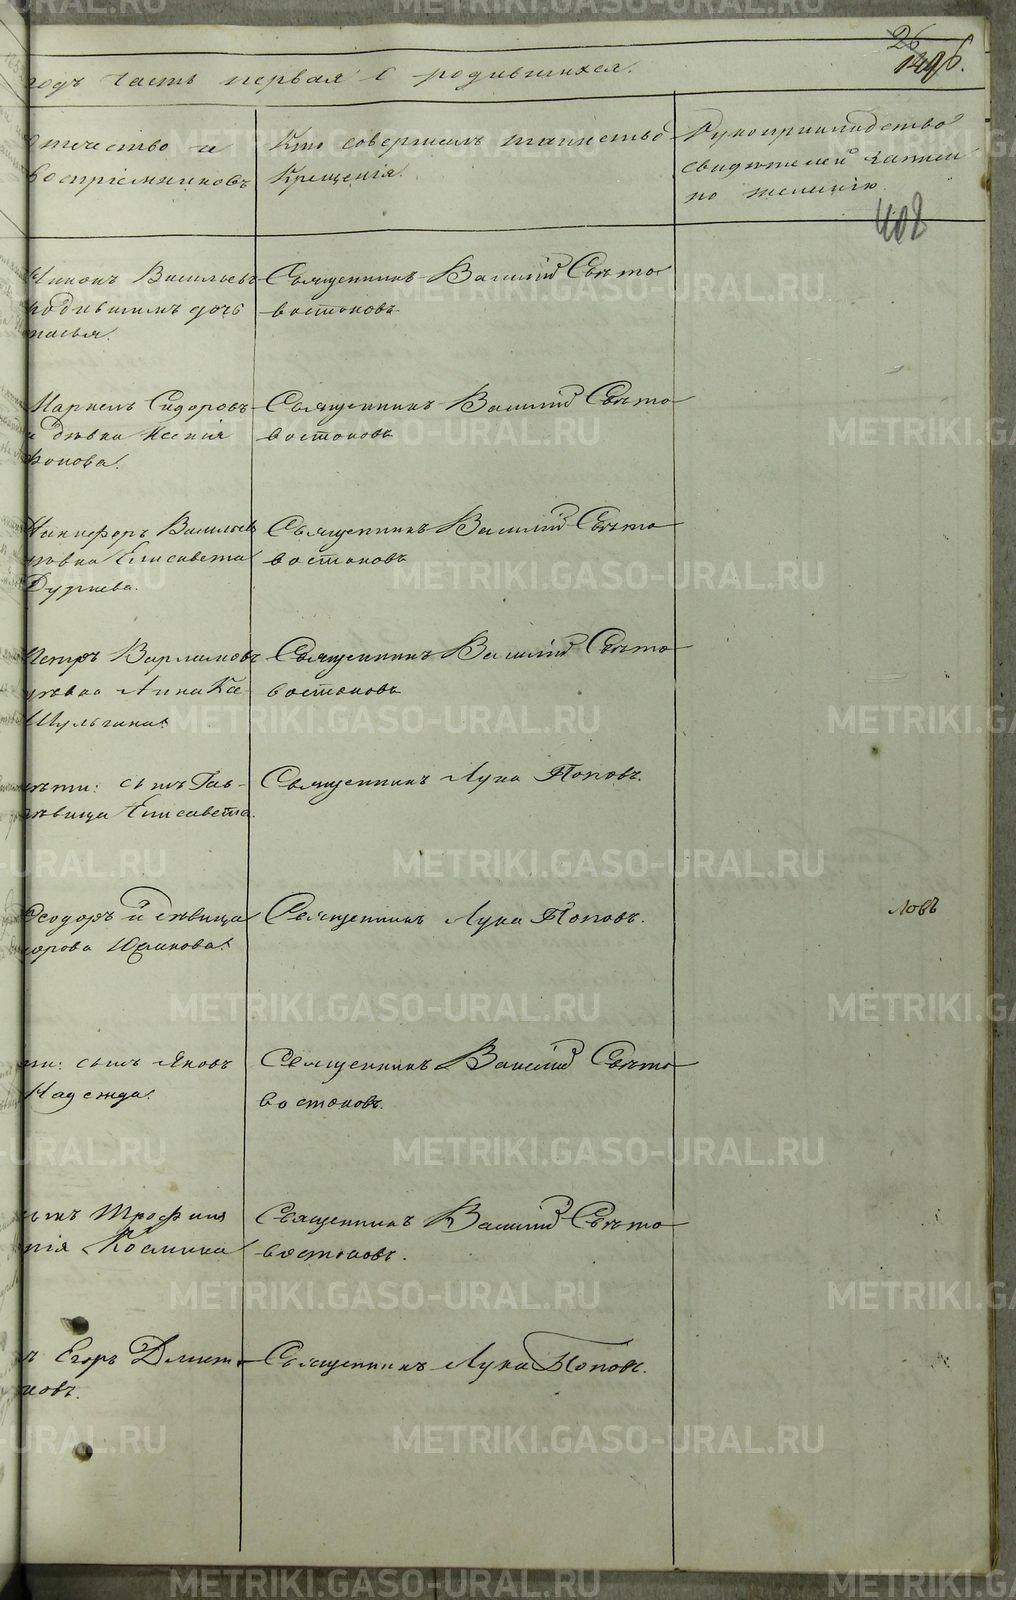 26
годъ часть первая о родившихся.
отчество и
воспріемниковъ.
Кто совершалъ таинство
Крещенія.
Рукоприкладство
свидѣтелей записи
по желанію.
408
Никонъ Васильевъ
родившимъ дочь
Священникъ Василій Свѣто
востоковъ
Маркелъ Сидоровъ
и дѣвка Ксенія
Священникъ Василій Свѣто
востоковъ
Никифоръ Васильевъ
дѣвка Елисавета
Дурнева.
Священникъ Василій Свѣто
востоковъ
Петръ Варламовъ
дѣвка Анна Ка
Шульгина.
Священникъ Василій Свѣто
востоковъ
сынъ Гав-
дѣвица Елисавета.
Священникъ Лука Поповъ.
Ѳеодоръ и дѣвица
Священникъ Лука Поповъ.
ловъ
сынъ Яковъ
Надежда.
Священникъ Василій Свѣто
востоковъ.
сынъ Трофимъ
нія Космина
Священникъ Василій Свѣто
востоковъ.
ъ Егоръ Дмит-
новъ.
Священникъ Лука Поповъ.
METRIKI.GASO-URAL.RU